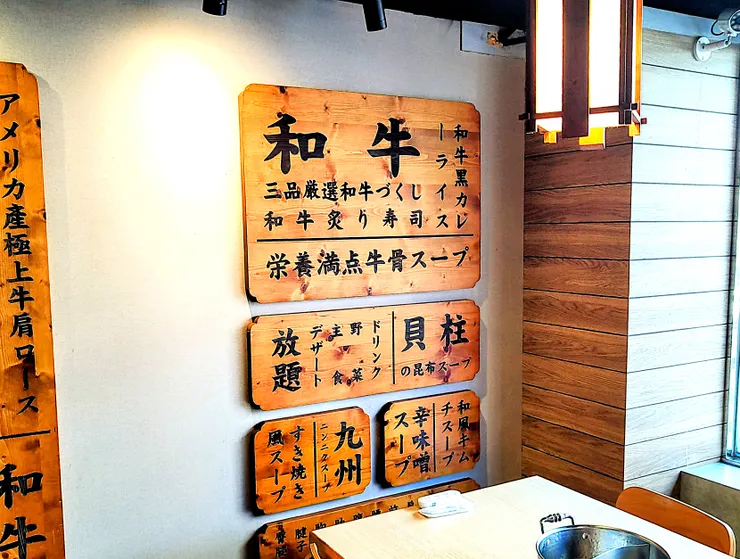 アメリカ産極上牛肩ロース
和牛
和牛
三品厳選和牛づくし
和牛炙り寿司
和牛黒カレ
ーライス
栄養満点牛骨スープ
ドリンク
野菜
主食
デザート
放題
貝柱
の昆布スープ
九州
ニンニクスープ
すき焼き
風スープ
和風キム
チスープ
辛味噌
スープ